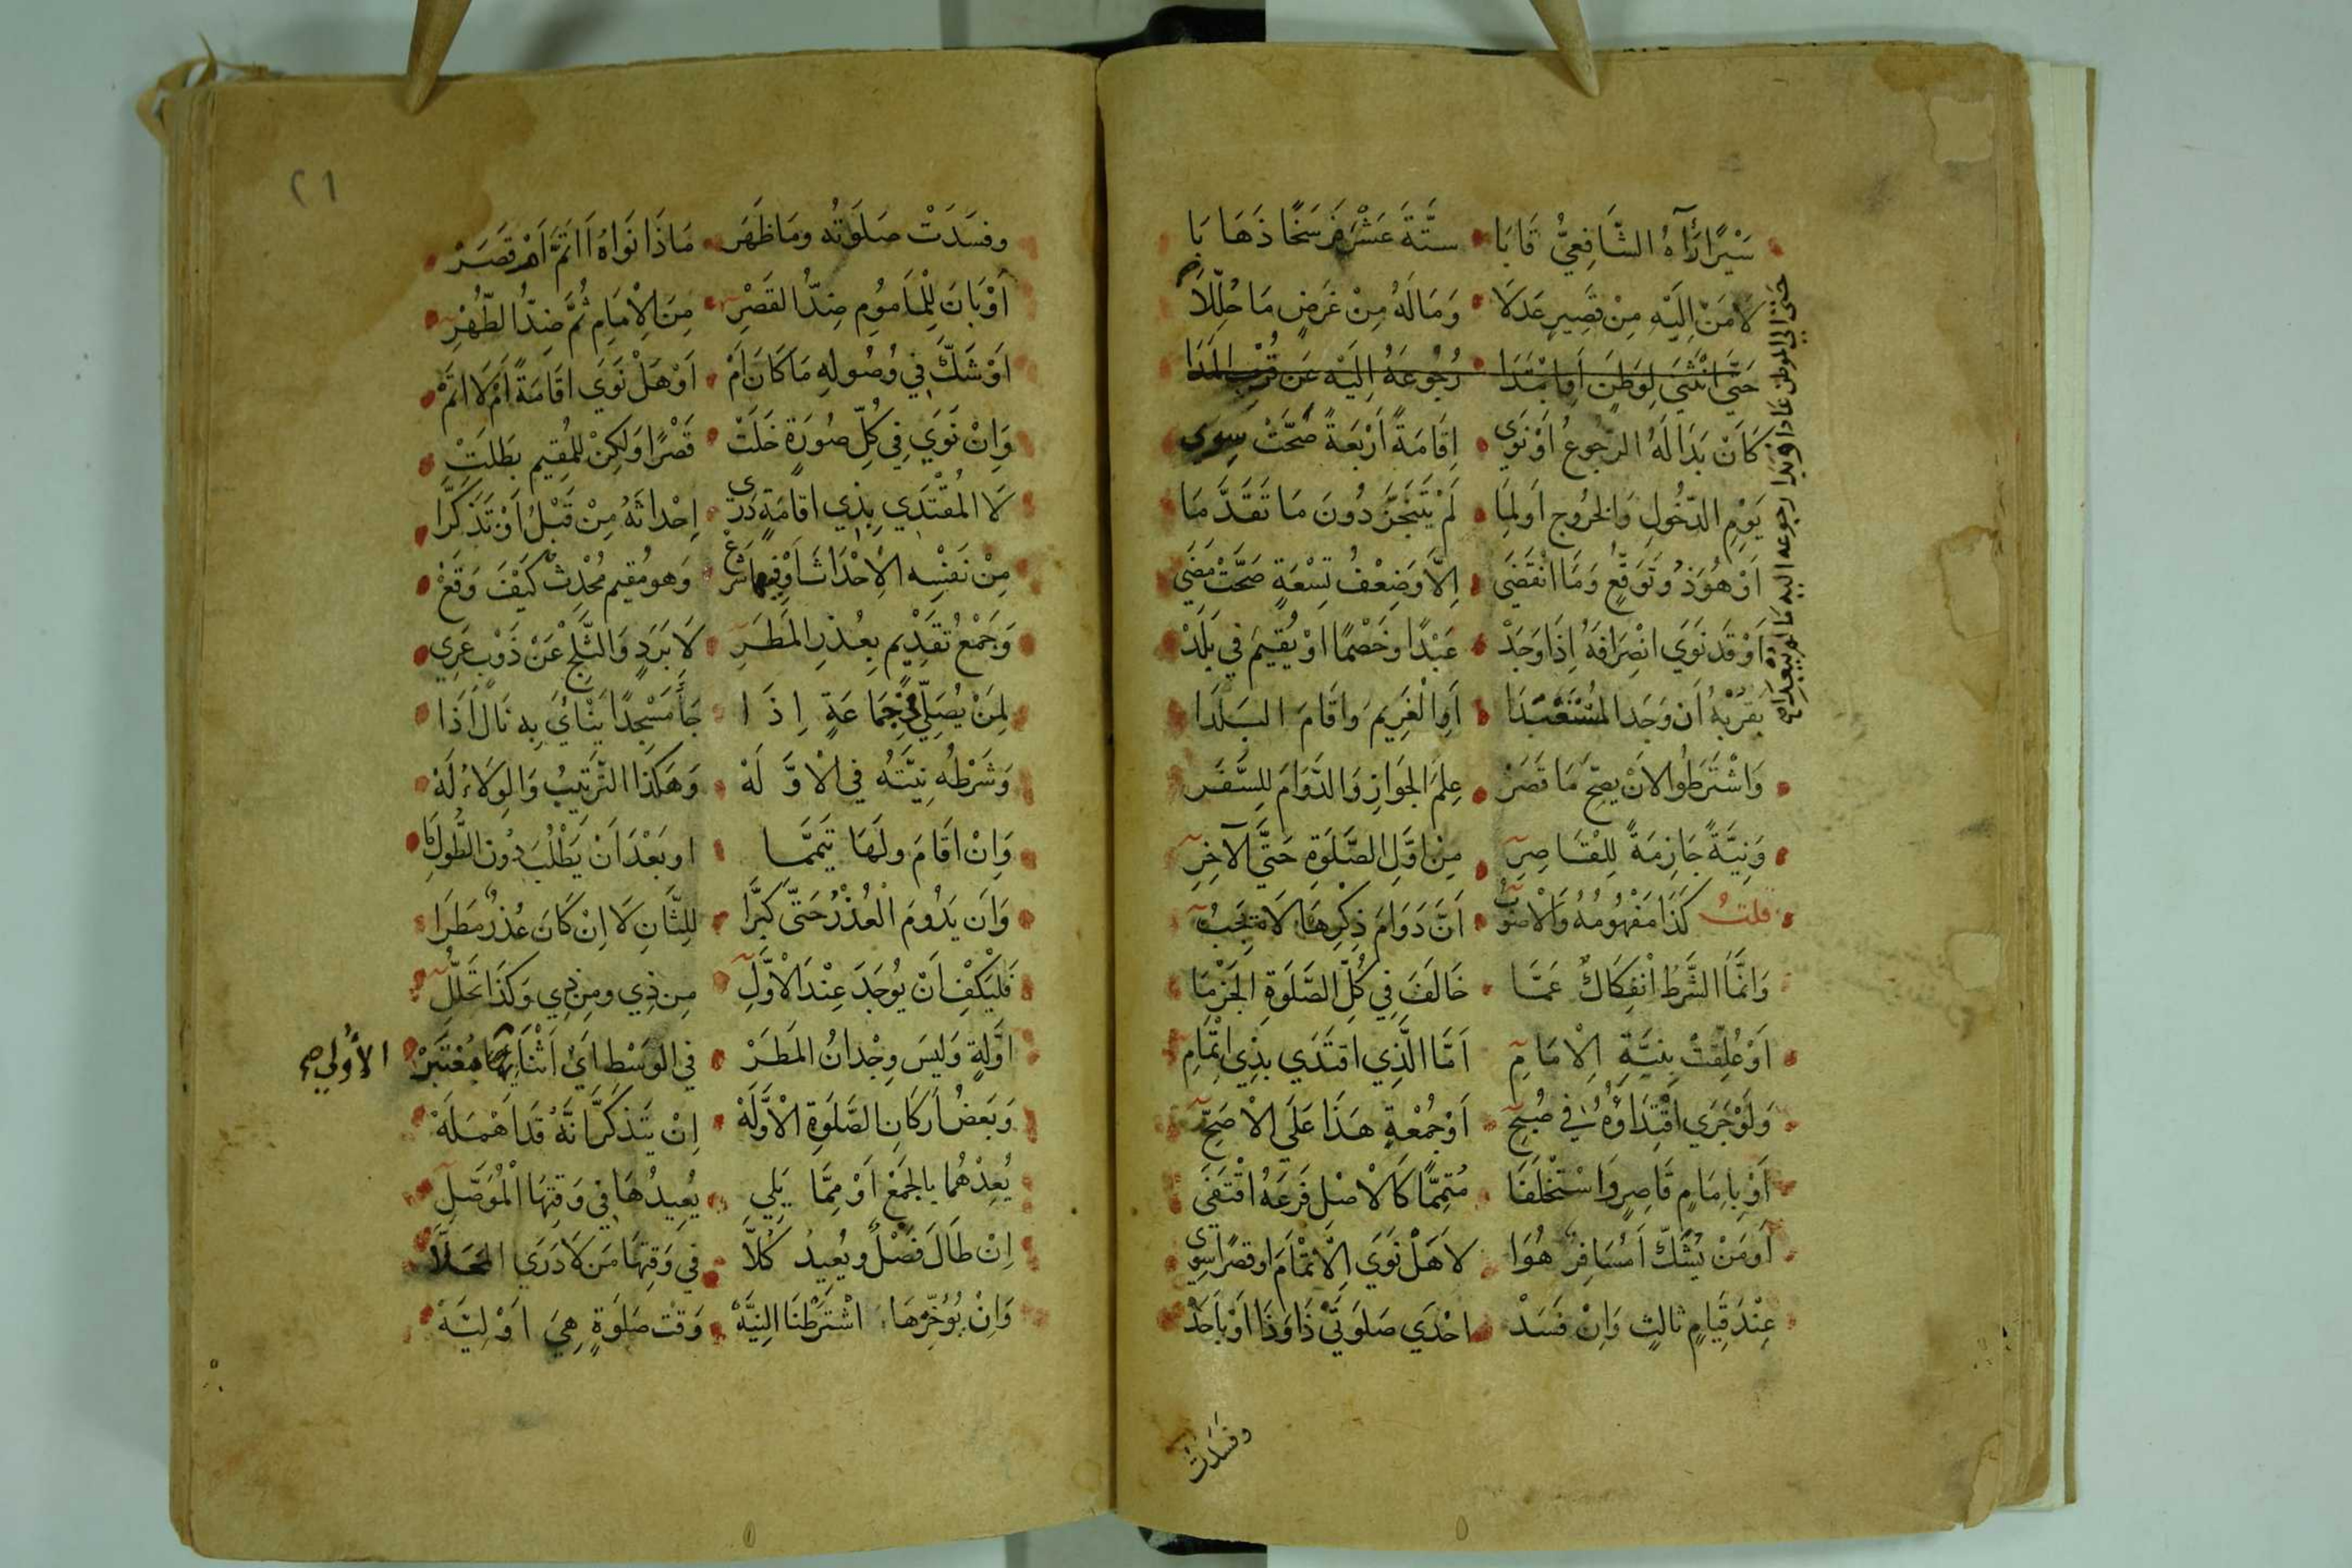 سَيْرًا رَآهُ الشَّافِعِيُّ قَابَا سِتَّةَ عَشْرَ فَرْسَخًا ذَهَابَا
لَا مَنْ اِلَيْهِ مِنْ قَصِيرٍ عَدَلَا وَمَا لَهُ مِنْ غَرَضٍ مَا حُلِّلَا
حَتَّى انْثَنَى لِوَطَنٍ اَو ابْتَدَا رُجُوعَهُ اِلَيْهِ عَن قُرْبِ المَدَا
كَانَ بَدَا لَهُ الرّجُوعُ اَوْ نَوَى اِقَامَةً اَرْبَعَةً صَحَّتْ سِوَى
يَوْمِ الدّخُولِ وَالخُرُوجِ اَو لِمَا لَمْ يَتَنَجَّزْ دُونَ مَا تَقَدَّمَا
اَوْ هُوَ ذُو تَوَقّعٍ وَمَا انْقَضَى اِلَّا وَضِعْفُ تِسْعَةٍ صَحَّتْ مَضَى
اَوْ قَد نَوَى انْصِرَافَهُ اِذَا وَجَدْ عَبْدًا وَخَصْمًا اوْ يُقِيمَ فِي بَلَدْ
بِقُرْبِهِ اَن وَجَدا المُسْتَعْبَدَا اَوِ الْغَرِيمَ وَاقَامَ البَلَدَا
وَاشْتَرَطُوا لاَنْ يصِحّ مَا قَصَرْ عِلمَ الجَوَازِ وَالدَّوَامَ لِلسَّفَر
وَنِيَّةً جَازِمَةً لِلْقَاصِرِ مِنْ اوَّلِ الصَّلَوةِ حَتَّى الآخِرِ
قلتُ كَذَا مَفْهُومُهُ وَالْاَصْوَبُ اَنَّ دَوَامَ ذِكْرِهَا لَا يَجِبُ
وَانَّمَا الشَّرطُ انْفِكَاكٌ عَمَّا خَالَفَ فِي كُلّ الصَّلَوةِ الجَزْمَا
اَوْ عُلِّقَتْ بِنِيَّةِ الاِمَامِ اَمَّا الَّذِي اقتَدَى بِذِي اتْمَامِ
وَلَوْ جَرَى اقْتِدَاؤُهُ فِي صُبْحِ اَوْ جُمْعَةٍ هَذَا عَلَى الْاَصَحِّ
اَوْ بِاِمَامٍ قَاصِرٍ وَاسْتَخْلَفَا مُتِمًّا كَالْاصْلِ فَرعَهُ اقْتَفَى
اَو مَنْ يَشُكّ اَمُسَافِرٌ هُوَا لَا هَلْ نَوَى الْاِتْمَامَ اوْ قَصْرًا سِوَى
عِنْدَ قِيَامٍ ثالِثٍ وَاِنْ فَسَدْ احْدَى صَلَوتَيْ ذَا وَذَا اَوْ بِاَحَدْ
وفسَدَت
حَتى الى الموطن عادا او بَدا رجوعه اليه مَا لم يبعدا صح
٢١
وفسَدَتْ صَلَوتُه ومَا ظَهَر مَاذَا نَوَاهُ اَاتَمَّ اَمْ قَصَرْ
اَوْ بَانَ لِلْمَامُومِ ضِدُّ القَصْرِ مِنَ الْاِمَامِ ثُمَّ ضِدُّ الطُّهْرِ
اَوْ شَكَّ فِي وُصُولِهِ مَا كَانَ اَمْ اَوْ هَلْ نَوَى اقَامَةً اَمْ لَا اتَمْ
وَاِنْ نَوَى فِي كُلّ صُورَةٍ خَلَتْ قَصْرًا وَلَكِنْ لِلمُقِيمِ بَطَلَتْ
لَا المُقْتَدِي بِذِي اقَامَةٍ دَرَى اِحْدَاثَهُ مِنْ قَبْلُ اَوْ تَذَكَّرَا
مِنْ نَفْسِه الْاِحْدَاثَ اَوْ فِيهَا شَرَعْ وَهو مُقِيم مُحْدِثٌ كَيْفَ وَقَعْ
وَجَمْعُ تَقْدِيْمٍ بِعُذرِ المَطَرِ لَا بَرَدٍ وَالثَّلجِ عَنْ ذَوْبٍ عَرِي
لِمَنْ يُصَلّي فِي جَمَاعَةٍ اِذَا جَاءَ مَسْجِدًا يَنْاَى بِه نَالَ اَذَا
وَشَرْطُه نِيَّتُه فِي الْاَوَّلَهْ وَهَكَذَا التَّرتِيبُ وَالوِلَاءُ لَهْ
وَاِنْ اقَامَ ولَهَا تَيَمَّمَا او بَعْدَ اَنْ يَطْلُبَ دُونَ الطُّولِ مَا
وَاَن يَدُومَ الْعُذْرُ حَتَّى كَبَّرَا لِلثَّانِ لَا اِنْ كَانَ عُذْرٌ مَطَرَا
فَليَكْفِ اَنْ يُوجَدَ عِنْدَ الْاَوَّلِ مِن ذِي ومِن ذِي وَكَذَا تَحَلُّلِ
اوَّلةٍ وَلَيسَ وِجْدانُ المَطَرْ في الوَسْطِ اَيْ اَثْنَائِهَا مُعْتَبَرْ
الأُولى صح
وَبَعضُ اَركَانِ الصَّلَوةِ الْاَوَّلَهْ اِنْ يَتَذَكَّرْ اَنَّهُ قَد اَهْمَلَهْ
يُعِدْهُمَا بالجَمْعِ اَوْ مِمَّا يَلِي يُعِيدُهَا فِي وَقتِهَا الْمُوَصَّلِ
اِنْ طَالَ فَصْلٌ ويُعِيدُ كُلَّا في وَقتِهَا مَن لَا دَرَى المَحَلَّا
وَاِنْ يُؤَخِّرْهَا اشْتَرَطْنَا النِيَّهْ وَقت صَلَوةٍ هِيَ اَوّلِيَّهْ